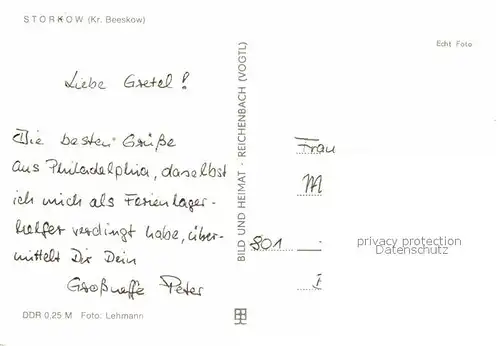 STORKOW (Kr. Beeskow)
Echt Foto
Liebe Gretel!
Die besten Grüße
aus Philadelphia, daselbst
ich mich als Ferienlager-
helfer verdingt habe, über-
mittelt Dir Dein
Großneffe Peter
BILD UND HEIMAT · REICHENBACH (VOGTL)
Frau
M
801
I
privacy protection
Datenschutz
DDR 0,25 M Foto: Lehmann